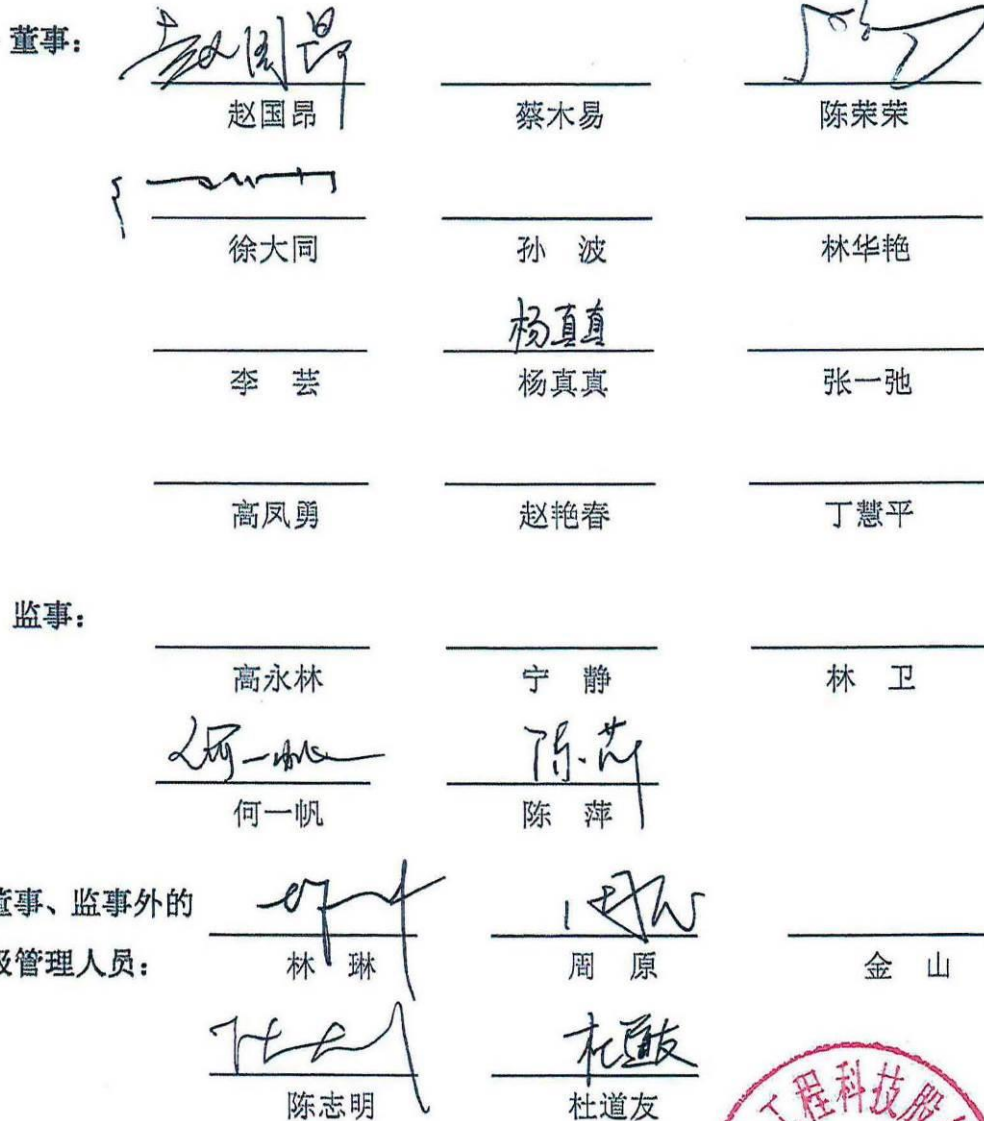 董事：
赵国昂
赵国昂 蔡木易 陈荣荣
徐大同 孙 波 林华艳
杨真真
李 芸 杨真真 张一弛
高凤勇 赵艳春 丁慧平
监事：
高永林 宁 静 林 卫
何一帆 陈萍
何一帆 陈 萍
董事、监事外的
级管理人员：
林 琳 周 原 金 山
杜道友
陈志明 杜道友
工程科技股